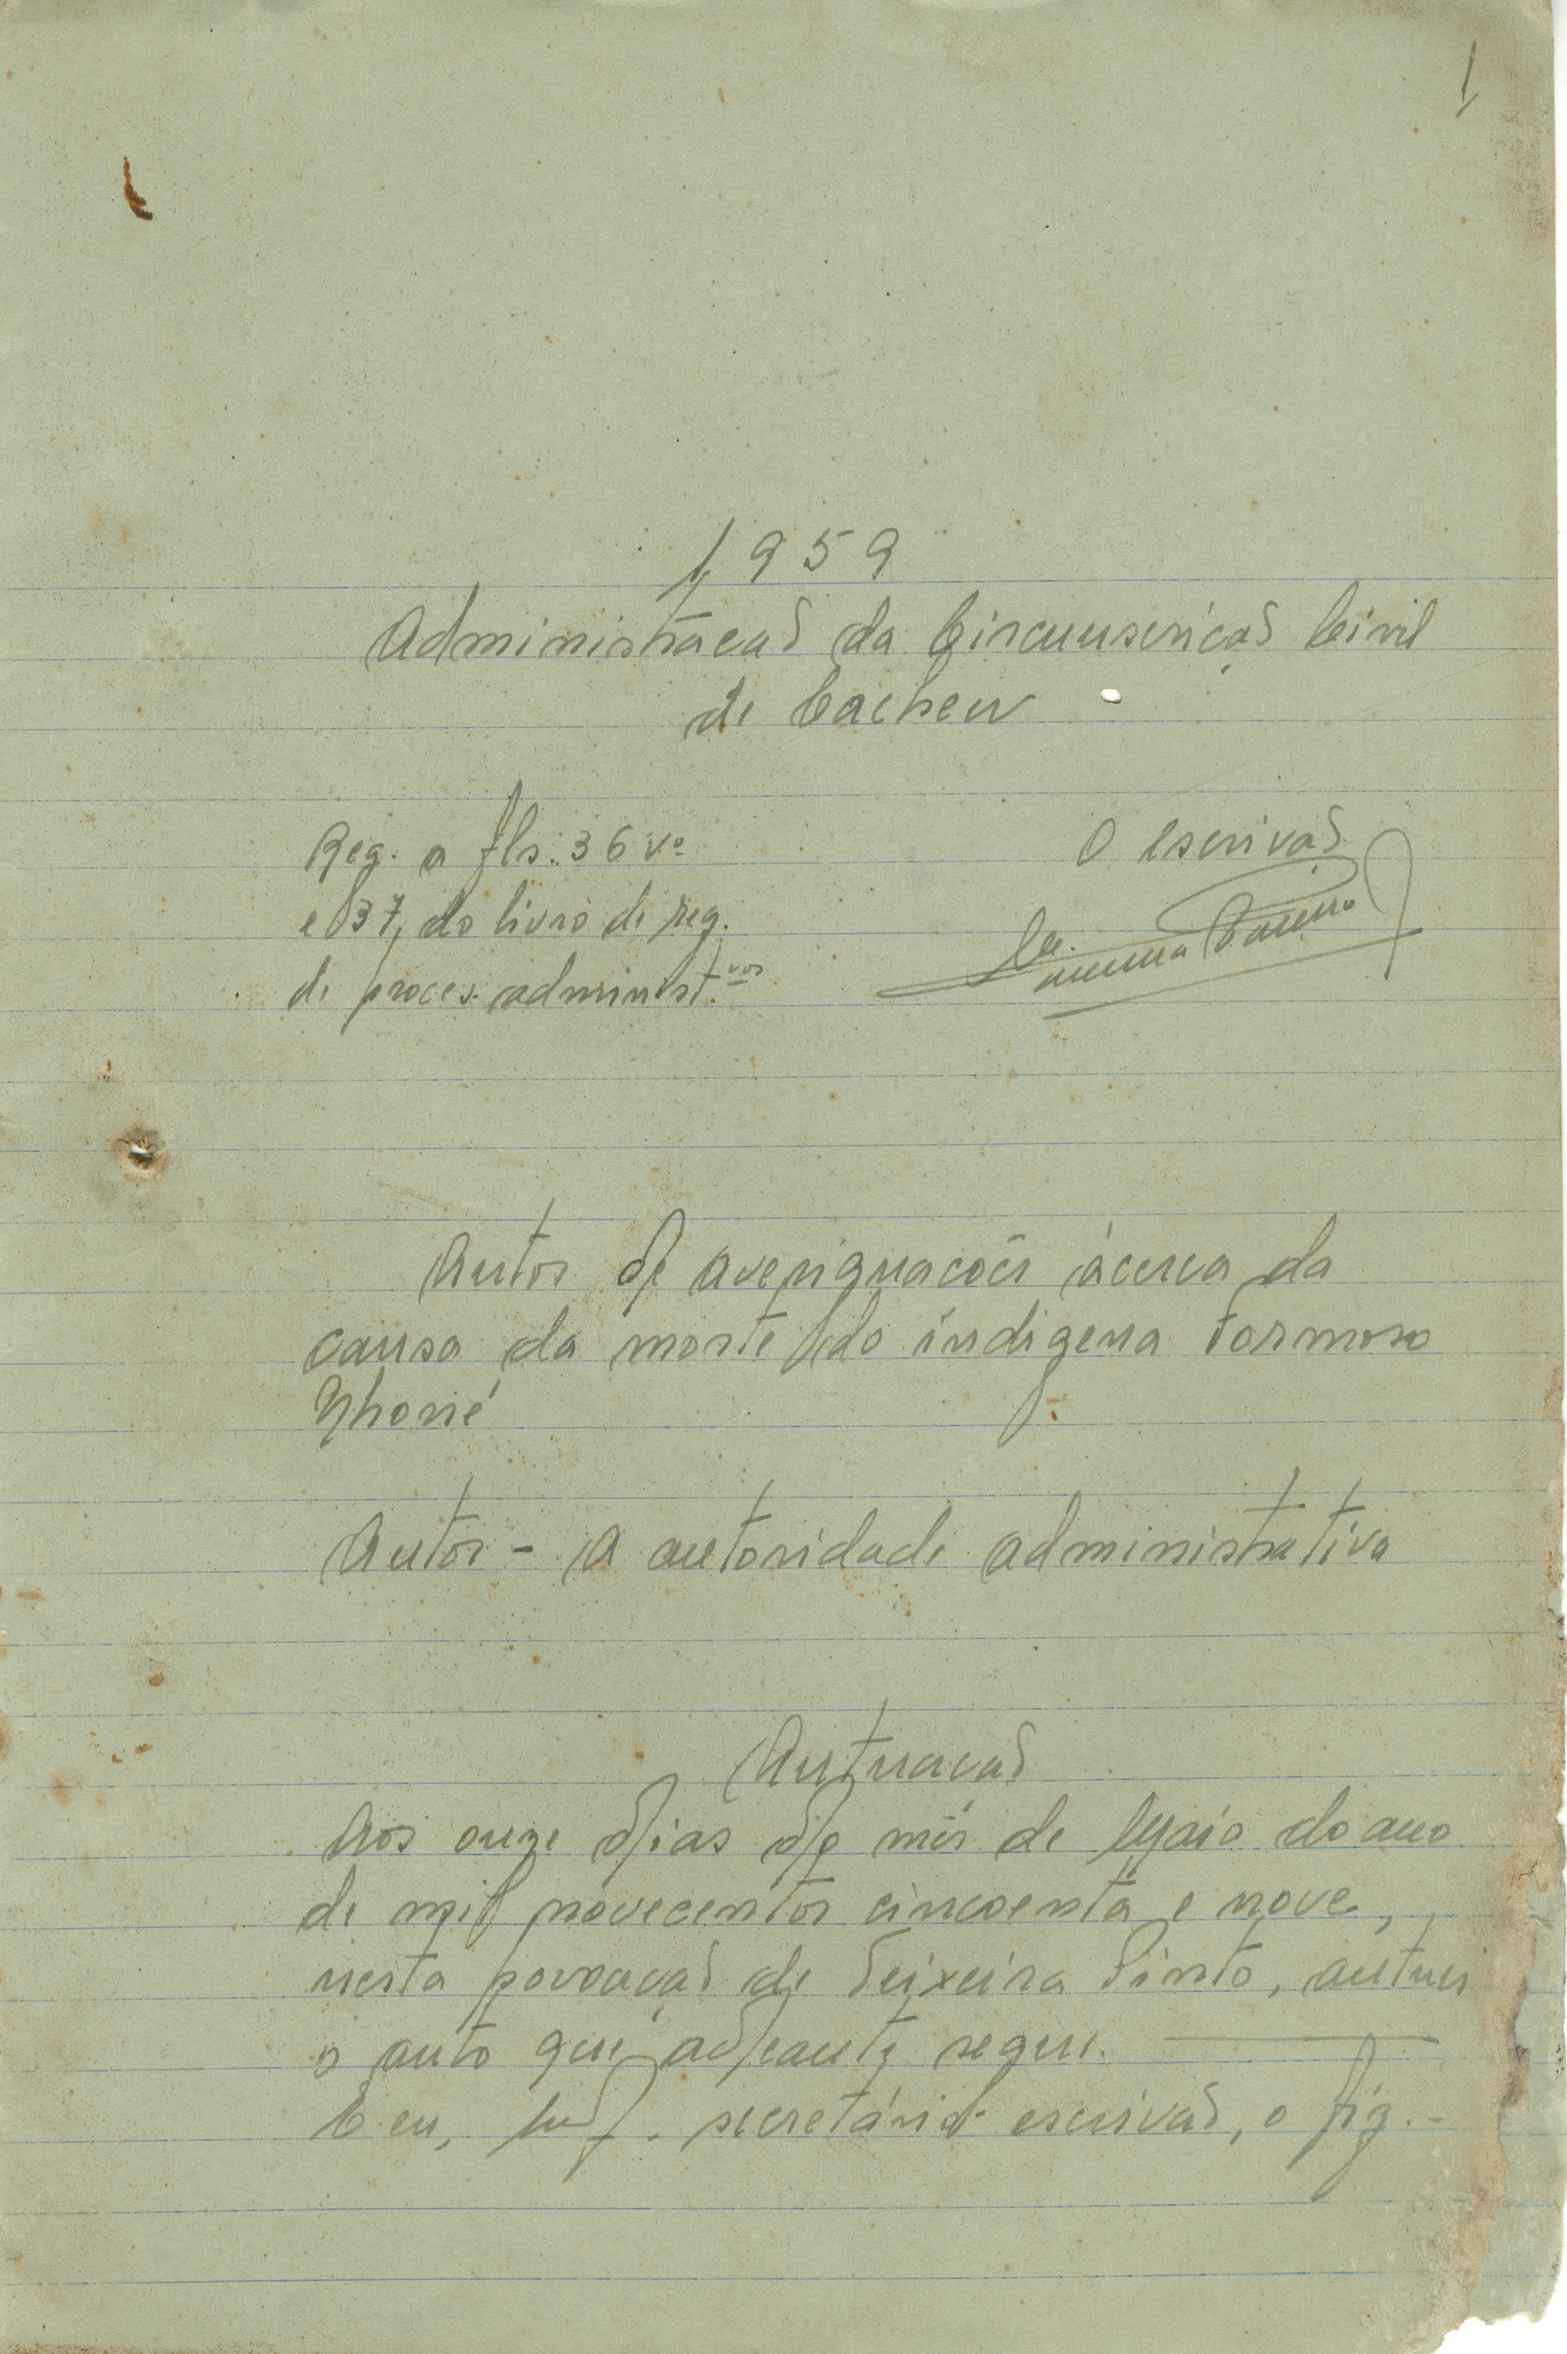 1
1959
Administração da Circunscrição Civil
de Cacheu
Reg. a fls. 36 vº
e 37, do livro de reg.
de proces. administ.vos
O escrivão
Autos de averiguações àcerca da
causa da morte do indígena Formoso
Autor - A autoridade administrativa
Autuação
Aos onze dias do mês de Maio do ano
de mil novecentos cincoenta e nove,
nesta povoação de Teixeira Pinto, autuei
o auto que adeante segue.
E eu, secretário escrivão, o fiz.-